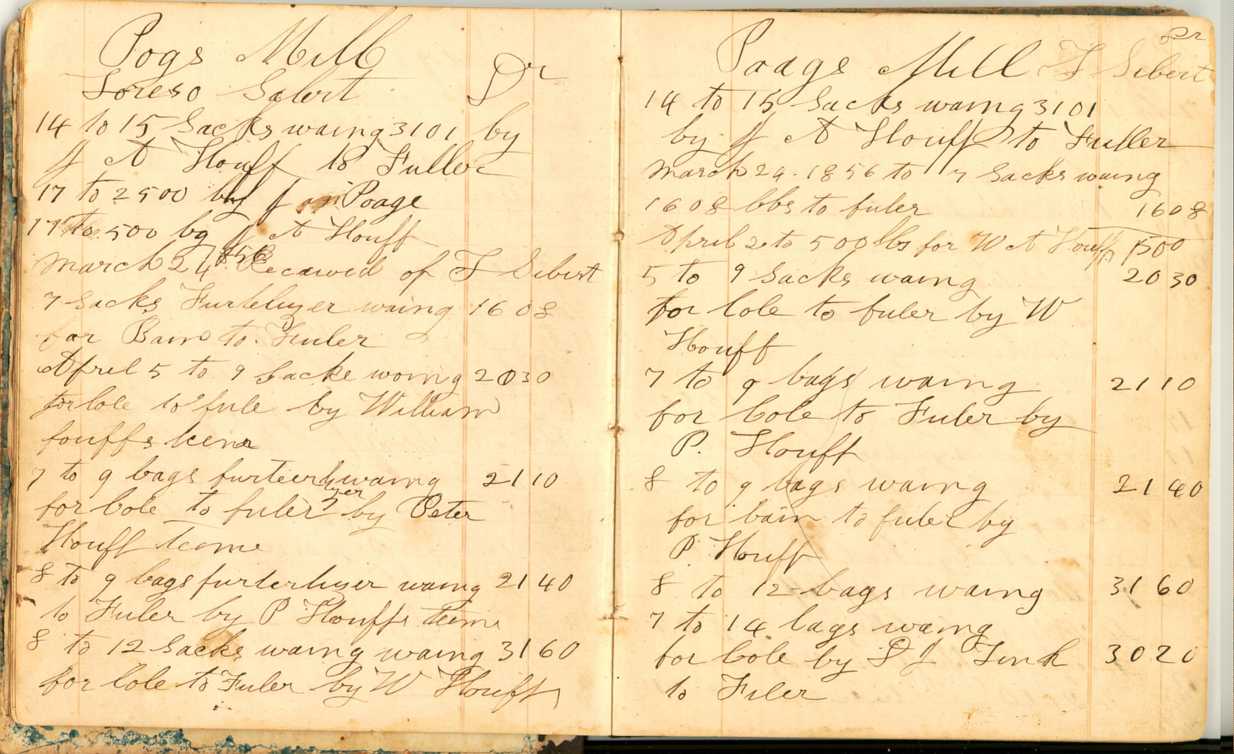 Pogs Mill
Loreso Sebert Dr
14 to 15 Sacks waing 3101 by
J A Houff to Fuller
17 to 2500 by J Poage
17 to 500 by J A Houff
March 24 1856 Recawed of F Sibert
7 Sacks Furtelizer waing 1608
for Bain to Fuler
April 5 to 9 Sacke woing 2030
for Cole to fule by William
fouffs teme
7 to 9 bags furteerlizer waing 2110
for Cole to fuler by Peter
Houff teeme
8 to 9 bags furterlizer waing 2140
to Fuler by P Houffs teme
8 to 12 Sacks waing waing 3160
for Cole to Fuler by W Houff
Poags Mill F Sibert Dr
14 to 15 Sacks waing 3101
by J A Houff to Fuller
March 29. 1856 to 7 Sacks waing
1608 bbs to fuler 1608
April 2 to 500 lbs for W A Houff 500
5 to 9 Sacks waing 2030
for Cole to fuler by W
Houff
7 to 9 bags waing 2110
for Cole to Fuler by
P. Houff
8 to 9 bags waing 2140
for bain to fuler by
P Houff
8 to 12 bags waing 3160
7 to 14 bags waing
for Cole by D L Tink 3020
to Fuler